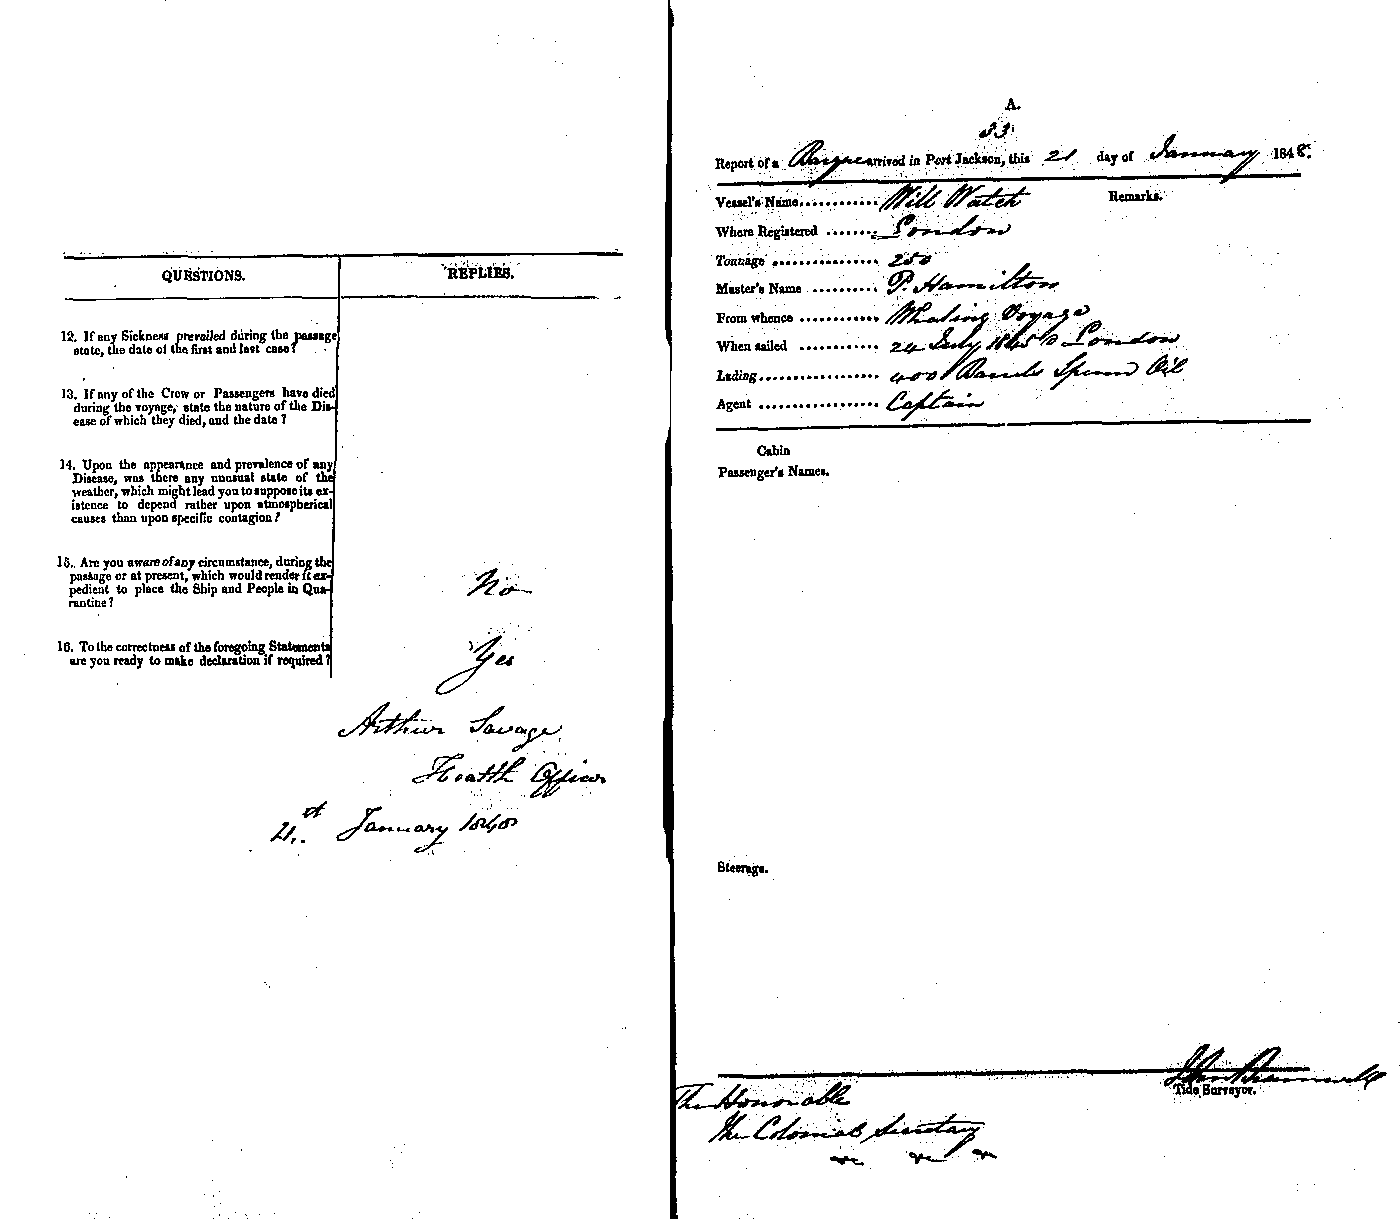 QUESTIONS.
REPLIES.
12. If any Sickness prevailed during the passage
state, the date of the first and last case?
13. If any of the Crew or Passengers have died
during the voyage, state the nature of the Dis-
ease of which they died, and the date?
14. Upon the appearance and prevalence of any
Disease, was there any unusual state of the
weather, which might lead you to suppose its ex-
istence to depend rather upon atmospherical
causes than upon specific contagion?
15. Are you aware of any circumstance, during the
passage or at present, which would render it ex-
pedient to place the Ship and People in Qua-
rantine?
No
16. To the correctness of the foregoing Statements
are you ready to make declaration if required?
Yes
Arthur Savage
Health Officer
21st January 1848
A.
33
Report of a Barque arrived in Port Jackson, this 21 day of January 1848.
Vessel's Name............ Will Watch
Remarks.
Where Registered ........ London
Tonnage ................ 250
Master's Name .......... P. Hamilton
From whence ............ Whaling Voyage
When sailed ............ 24 July 1845 London
Lading.................. 400 Barrels Sperm Oil
Agent .................. Captain
Cabin
Passenger's Names.
Steerage.
John
Tide Surveyor.
The Honorable
The Colonial Secretary